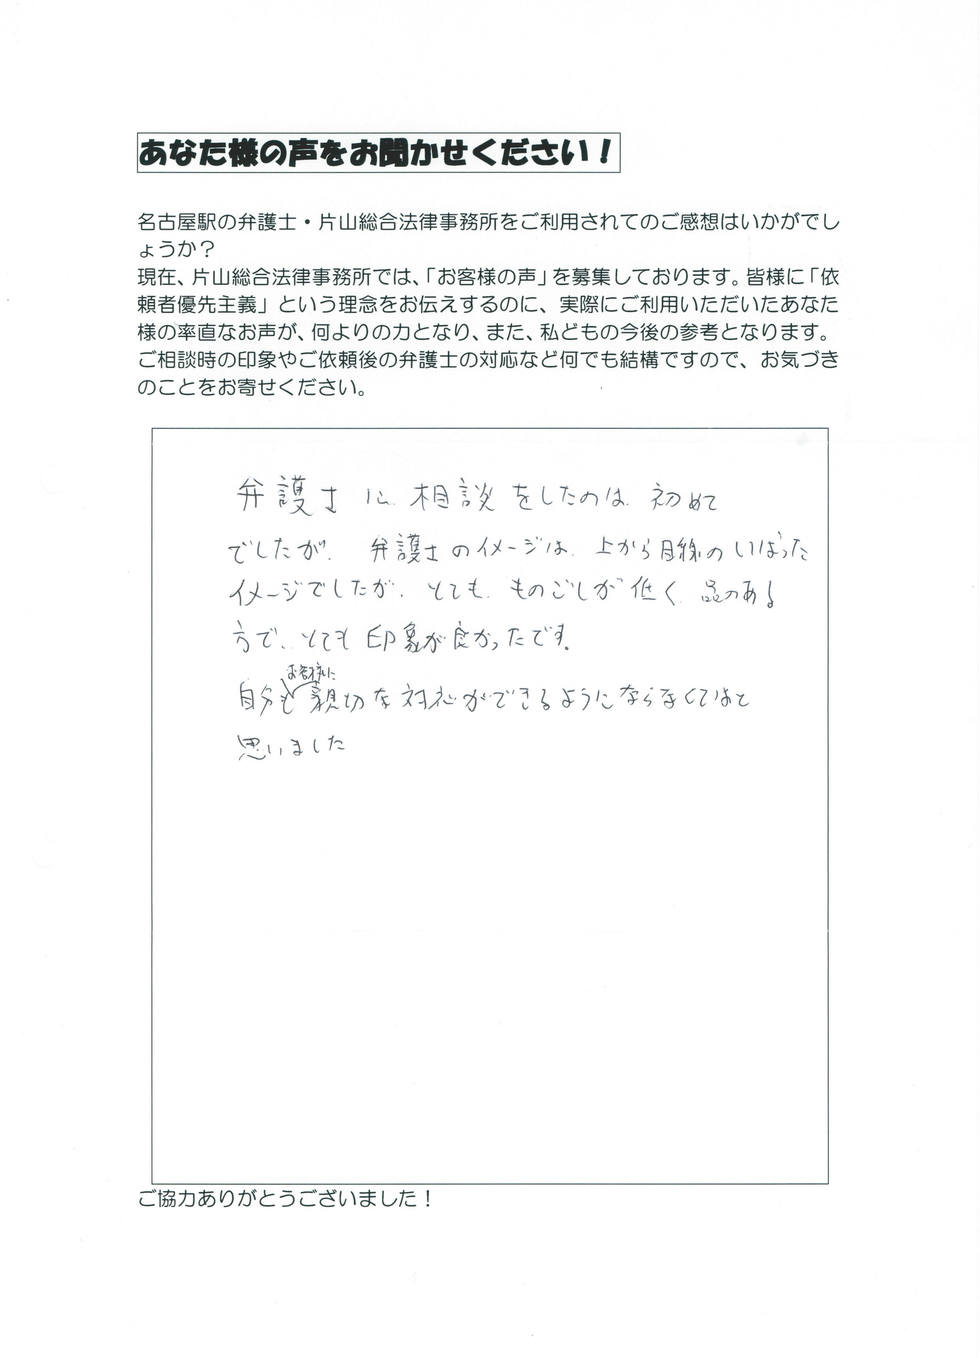 あなた様の声をお聞かせください！
名古屋駅の弁護士・片山総合法律事務所をご利用されてのご感想はいかがでし
ょうか？
現在、片山総合法律事務所では、「お客様の声」を募集しております。皆様に「依
頼者優先主義」という理念をお伝えするのに、実際にご利用いただいたあなた
様の率直なお声が、何よりの力となり、また、私どもの今後の参考となります。
ご相談時の印象やご依頼後の弁護士の対応など何でも結構ですので、お気づき
のことをお寄せください。
弁護士に相談をしたのは初めて
でしたが、弁護士のイメージは、上から目線のいばった
イメージでしたが、とても、ものごしが低く、品のある
方で、とても印象が良かったです。
お客様に
自分も親切な対応ができるようにならなくてはと
思いました
ご協力ありがとうございました！